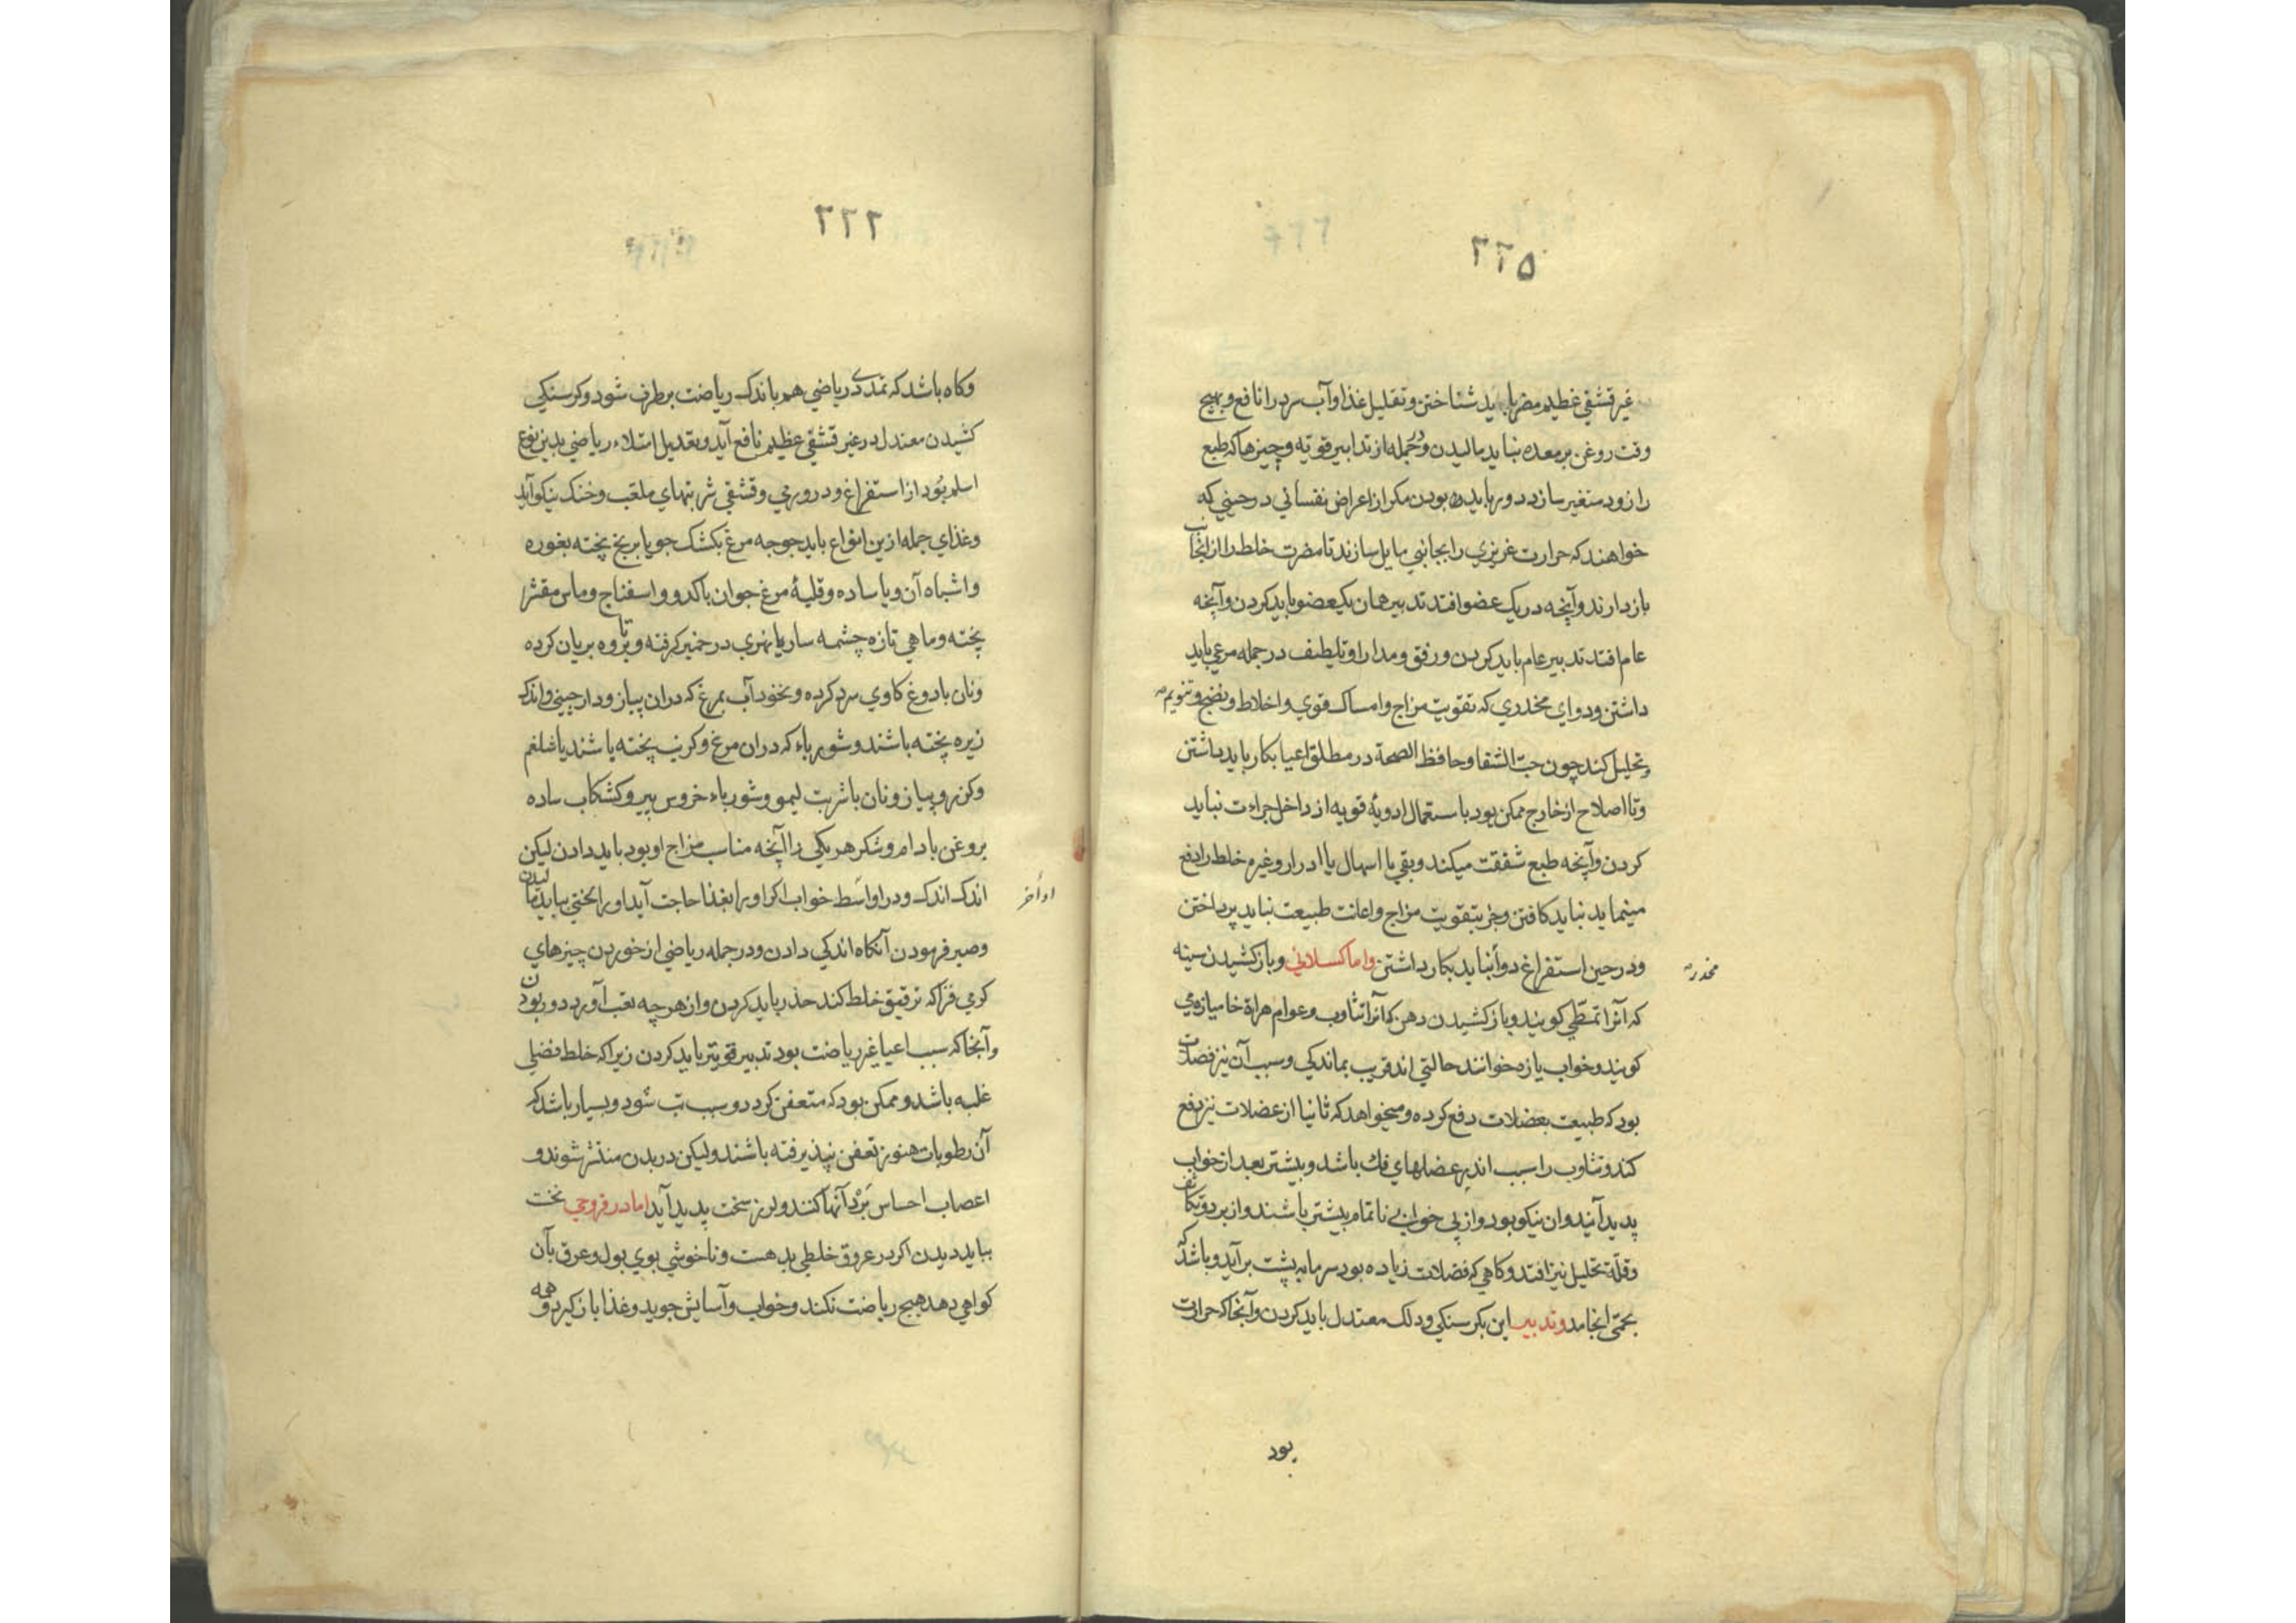 ۲۲۵
غیر قشفی عظیم مضر باید شناختن و تقلیل غذا و آب سرد را نافع و بهیچ
وقت روغن بر معده نباید مالیدن و جمله از تدابیر قویه و چیزها که طبع
را زود متغیر سازد دور باید بودن مکر از اعراض نفسانی در حینی که
خواهند که حرارت غریزی را بجانبی مایل سازند تا مضرت خلط را از انجانب
بازدارند و آنچه در یک عضو افتد تدبیر همان یک عضو باید کردن و آنچه
عام افتد تدبیر عام باید کردن و رفق و مدارا و تلطیف در جمله مرعی باید
داشتن و دوای مخدری که تقویت مزاج و امساک قوی و اخلاط و نضج و تنویم
و تحلیل کند چون حب الشفا و حافظ الصحة در مطلق اعیا بکار باید داشتن
و تا اصلاح از خارج ممکن بود باستعمال ادویهٔ قویه از داخل جراءت نباید
کردن و آنچه طبع شفقت میکند و بقی یا اسهال یا ادرار و غیره خلط را دفع
مینماید نباید کافتن و جز بتقویت مزاج و اعانت طبیعت نباید پرداختن
و در حین استفراغ دوا نباید بکار داشتن و اما کسلانی و باز کشیدن سینه
مخدره
که آنرا تمطّی کویند و باز کشیدن دهن که آنرا تثاوب و عوام هراة خامیازه می
کویند و خواب یازه خوانند حالتی اند قریب بماندکی و سبب آن نیز فضلات
بود که طبیعت بعضلات دفع کرده و میخواهد که ثانیا از عضلات نیز دفع
کند و تثاوب را سبب اندر عضلهای فک باشد و بیشتر بعد از خواب
پدید آیند و ان نیکو بود و از پی خوابی ناتمام بیشتر باشند و از برد و تکاثف
و قلّة تحلیل نیز افتد و کاهی که فضلات زیاده بود سرما به پشت برآید و باشد که
بحمّی انجامد و تدبیر این بکرسنکی و دلک معتدل باید کردن و آنجا که حرارت
بود
۲۲۶
وکاه باشد که تمدد ریاضی هم باندک ریاضت برطرف شود و کرسنکی
کشیدن معتدل در غیر قشفی عظیم نافع آید و تعدیل امتلاء ریاضی بدین نوع
اسلم بود از استفراغ و در ورمی و قشفی شربتهای ملعّب و خنک نیکو آید
و غذای جمله ازین انواع باید جوجه مرغ بکشک جو یا برنج پخته بغوره
و اشباه آن و یا ساده و قلیهٔ مرغ جوان با کدو و اسفناج و ماس مقشر
پخته و ماهی تازه چشمه سار یا نهری در خمیر کرفته و بر تاوه بریان کرده
و نان با دوغ کاوی سرد کرده و نخود آب بمرغ که دران پیاز و دارچینی و اندک
زیره پخته باشند و شورباء که دران مرغ و کرنب پخته باشند یا شلغم
و کزر و پیاز و نان با شربت لیمو و شورباء خروس پیر و کشکاب ساده
بروغن بادام و شکر هر یکی را آنچه مناسب مزاج او بود باید دادن لیکن
اندک اندک و در اواسط خواب اکر او را بغذا حاجت آید او را لختی بباید مالیدن
اواخر
و صبر فرمودن آنکاه اندکی دادن و در جمله ریاضی از خوردن چیزهای
کرمی فزا که ترقیق خلط کند حذر باید کردن و از هر چه تعب آورد دور بودن
و آنجا که سبب اعیا غیر ریاضت بود تدبیر قویتر باید کردن زیرا که خلط فضلی
غلبه باشد و ممکن بود که متعفن کردد و سبب تب شود و بسیار باشد که
آن رطوبات هنوز تعفن نپذیرفته باشند ولیکن در بدن منتشر شوند و
اعصاب احساس بَرْد آنها کنند و لرز سخت پدید آید اما در قروحی نخست
بباید دیدن اکر در عروق خلطی بد هست و ناخوشی بوی بول و عرق بآن
کواهی دهد هیچ ریاضت نکند و خواب و آسایش جوید و غذا باز کیرد و همه